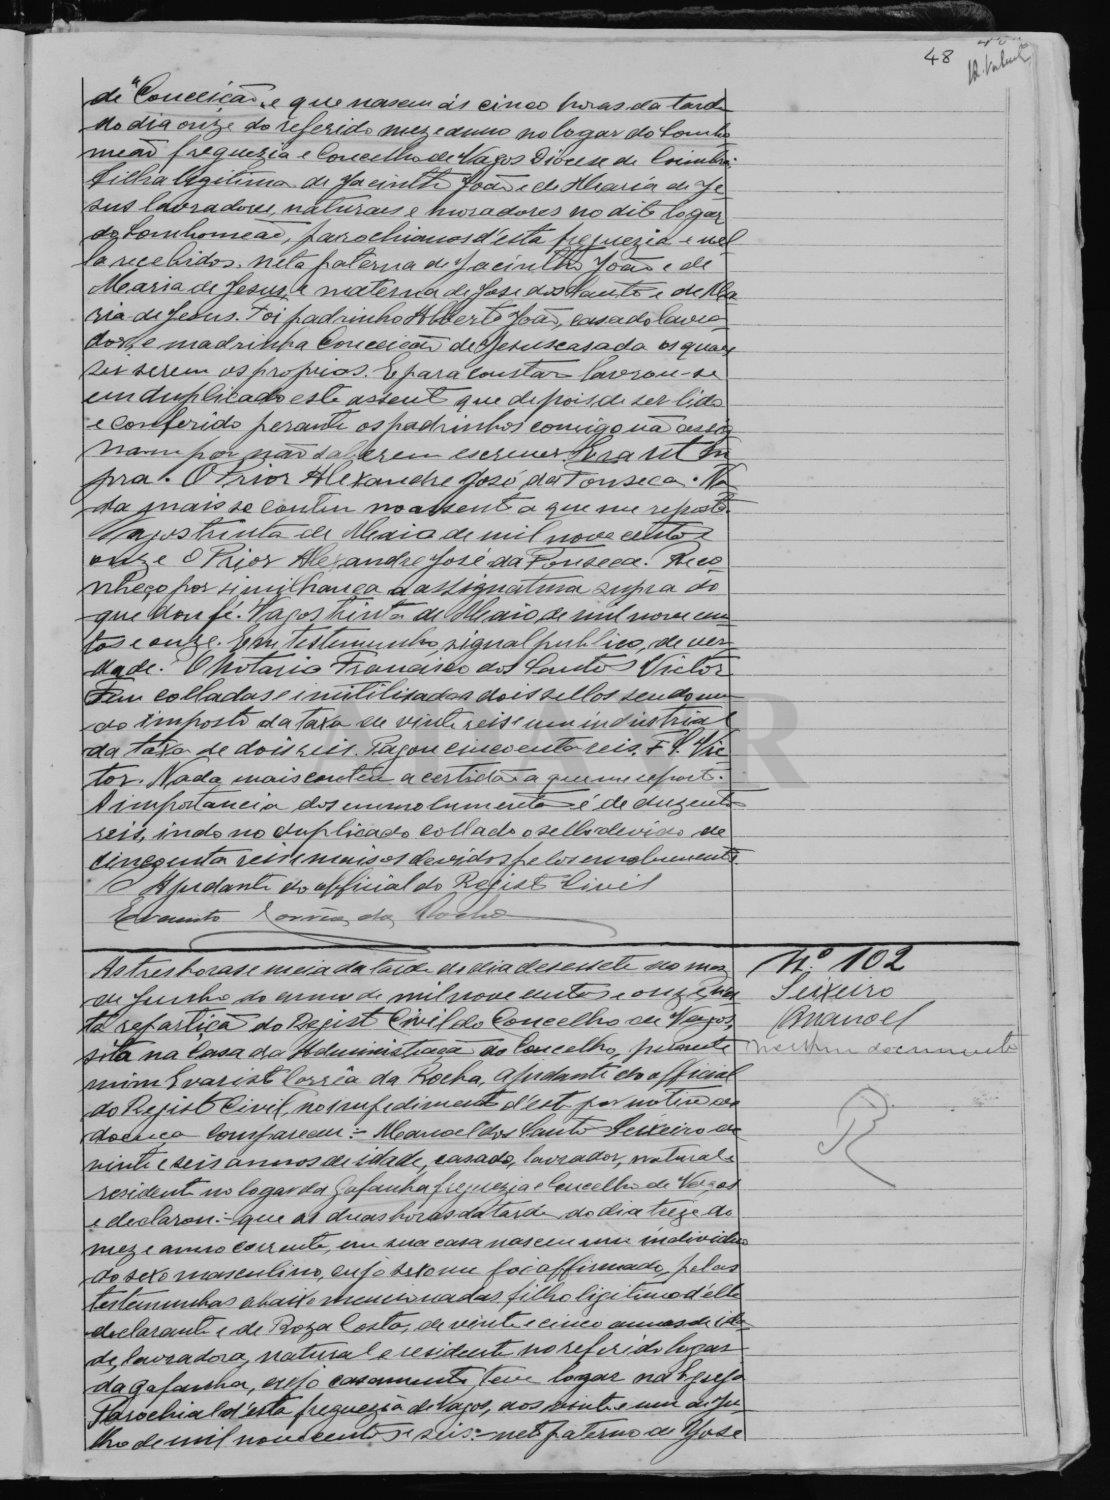 48
de "Conceição, e que nasceu ás cinco horas da tarde
do dia onze do referido mez e anno no logar do Lombo
meão freguezia e Concelho de Vagos Diocese de Coimbra.
Filha legitima de Jacintho João e de Maria de Je
sus lavradores, naturaes e moradores no dito logar
do Lombomeão, parochianos d'esta freguezia e nel
la recebidos. neta paterna de Jacintho João e de
Maria de Jesus, e materna de Jose dos Santos e de Ma
ria de Jesus. Foi padrinho Alberto João, casado lavra
dor, e madrinha Conceição de Jesus casada os quaes
sei serem os proprios. E para constar lavrou-se
em duplicado este assento que depois de ser lido
e conferido perante os padrinhos comigo não assig
nam por não saberem escrever. Era ut su
pra. O Prior Alexandre José da Fonseca. Na
da mais se contem no assento a que me reporto.
Vagos trinta de Maio de mil nove centos e
onze O Prior Alexandre José da Fonseca. Reco
nheço por similhança a assignatura supra do
que dou fé. Vagos trinta de Maio de mil nove cen
tos e onze. Em testemunho, signal publico, de ver
dade. O Notario Francisco dos Santos Victor
Tem collados e inutilisados dois sellos sendo um
do imposto da taxa de vinte reis e um industrial
da taxa de dois reis. Pagou cincoenta reis. F. S. Vic
tor. Nada mais contem a certidão a que me reporto.
A importancia dos emmolumentos é de duzentos
reis, indo no duplicado collado o sello devido de
cincoenta reis e mais os devidos pelos emolumentos.
O Ajudante do official do Registo Civil
Evaristo Corrêa da Rocha
As tres horas e meia da tarde do dia desesete do mez
de Junho do anno de mil nove centos e onze, nes
ta repartição do Registo Civil do Concelho de Vagos,
sita na Casa da Administração do Concelho, perante
mim Evaristo Corrêa da Rocha, ajudante do official
do Registo Civil, no impedimento d'este por motivo de
doença compareceu:- Manoel dos Santos Seixeiro de
vinte e seis annos de idade, casado, lavrador, natural e
residente no logar da Gafanha freguezia e Concelho de Vagos
e declarou:- que as duas horas da tarde do dia treze do
mez e anno corrente, em sua casa nasceu um individuo
do sexo masculino, cujo sexo me foi affirmado pelas
testemunhas abaixo mencionadas, filho ligitimo d'elle
declarante e de Roza Costa, de vinte e cinco annos de ida
de, lavradora, natural e residente no referido logar
da Gafanha, cujo casamento, teve logar na Egreja
Parochial d'esta freguezia de Vagos, aos vinte e um de Ju
lho de mil nove centos e seis:- neto paterno de Jose
Nº 102
Seixeiro
Manoel